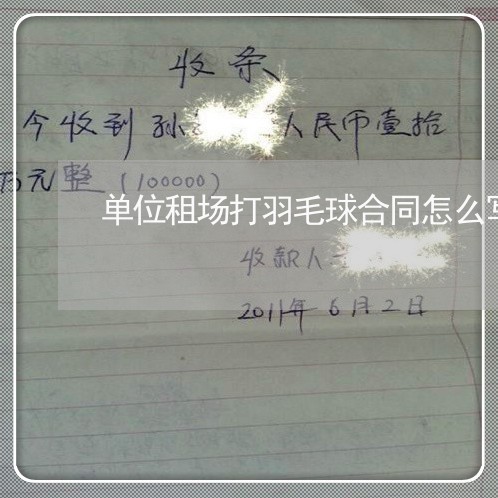 收条
今收到孙 人民币壹拾
万元整（100000）
单位租场打羽毛球合同怎么写
收款人
2011年6月2日